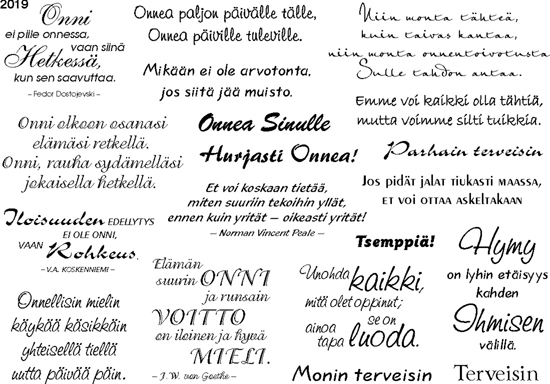 2019
Onni
ei piile onnessa,
vaan siinä
Hetkessä,
kun sen saavuttaa.
– Fedor Dostojevski –
Onnea paljon päivälle tälle,
Onnea päiville tuleville.
Mikään ei ole arvotonta,
jos siitä jää muisto.
Niin monta tähteä,
kuin taivas kantaa,
niin monta onnentoivotusta
Sulle tahdon antaa.
Emme voi kaikki olla tähtiä,
mutta voimme silti tuikkia.
Onni olkoon osanasi
elämäsi retkellä.
Onni, rauha sydämelläsi
jokaisella hetkellä.
Onnea Sinulle
Hurjasti Onnea!
Parhain terveisin
Et voi koskaan tietää,
miten suuriin tekoihin yllät,
ennen kuin yrität – oikeasti yrität!
– Norman Vincent Peale –
Jos pidät jalat tiukasti maassa,
et voi ottaa askeltakaan
Iloisuuden EDELLYTYS
EI OLE ONNI,
VAAN Rohkeus.
– V.A. KOSKENNIEMI –
Tsemppiä!
Hymy
on lyhin etäisyys
kahden
Ihmisen
välillä.
Onnellisin mielin
käykää käsikkäin
yhteisellä tiellä
uutta päivää päin.
Elämän
suurin ONNI
ja runsain
VOITTO
on iloinen ja hyvä
MIELI.
– J.W. von Goethe –
Unohda
kaikki,
mitä olet oppinut;
se on
ainoa
tapa luoda.
Monin terveisin
Terveisin